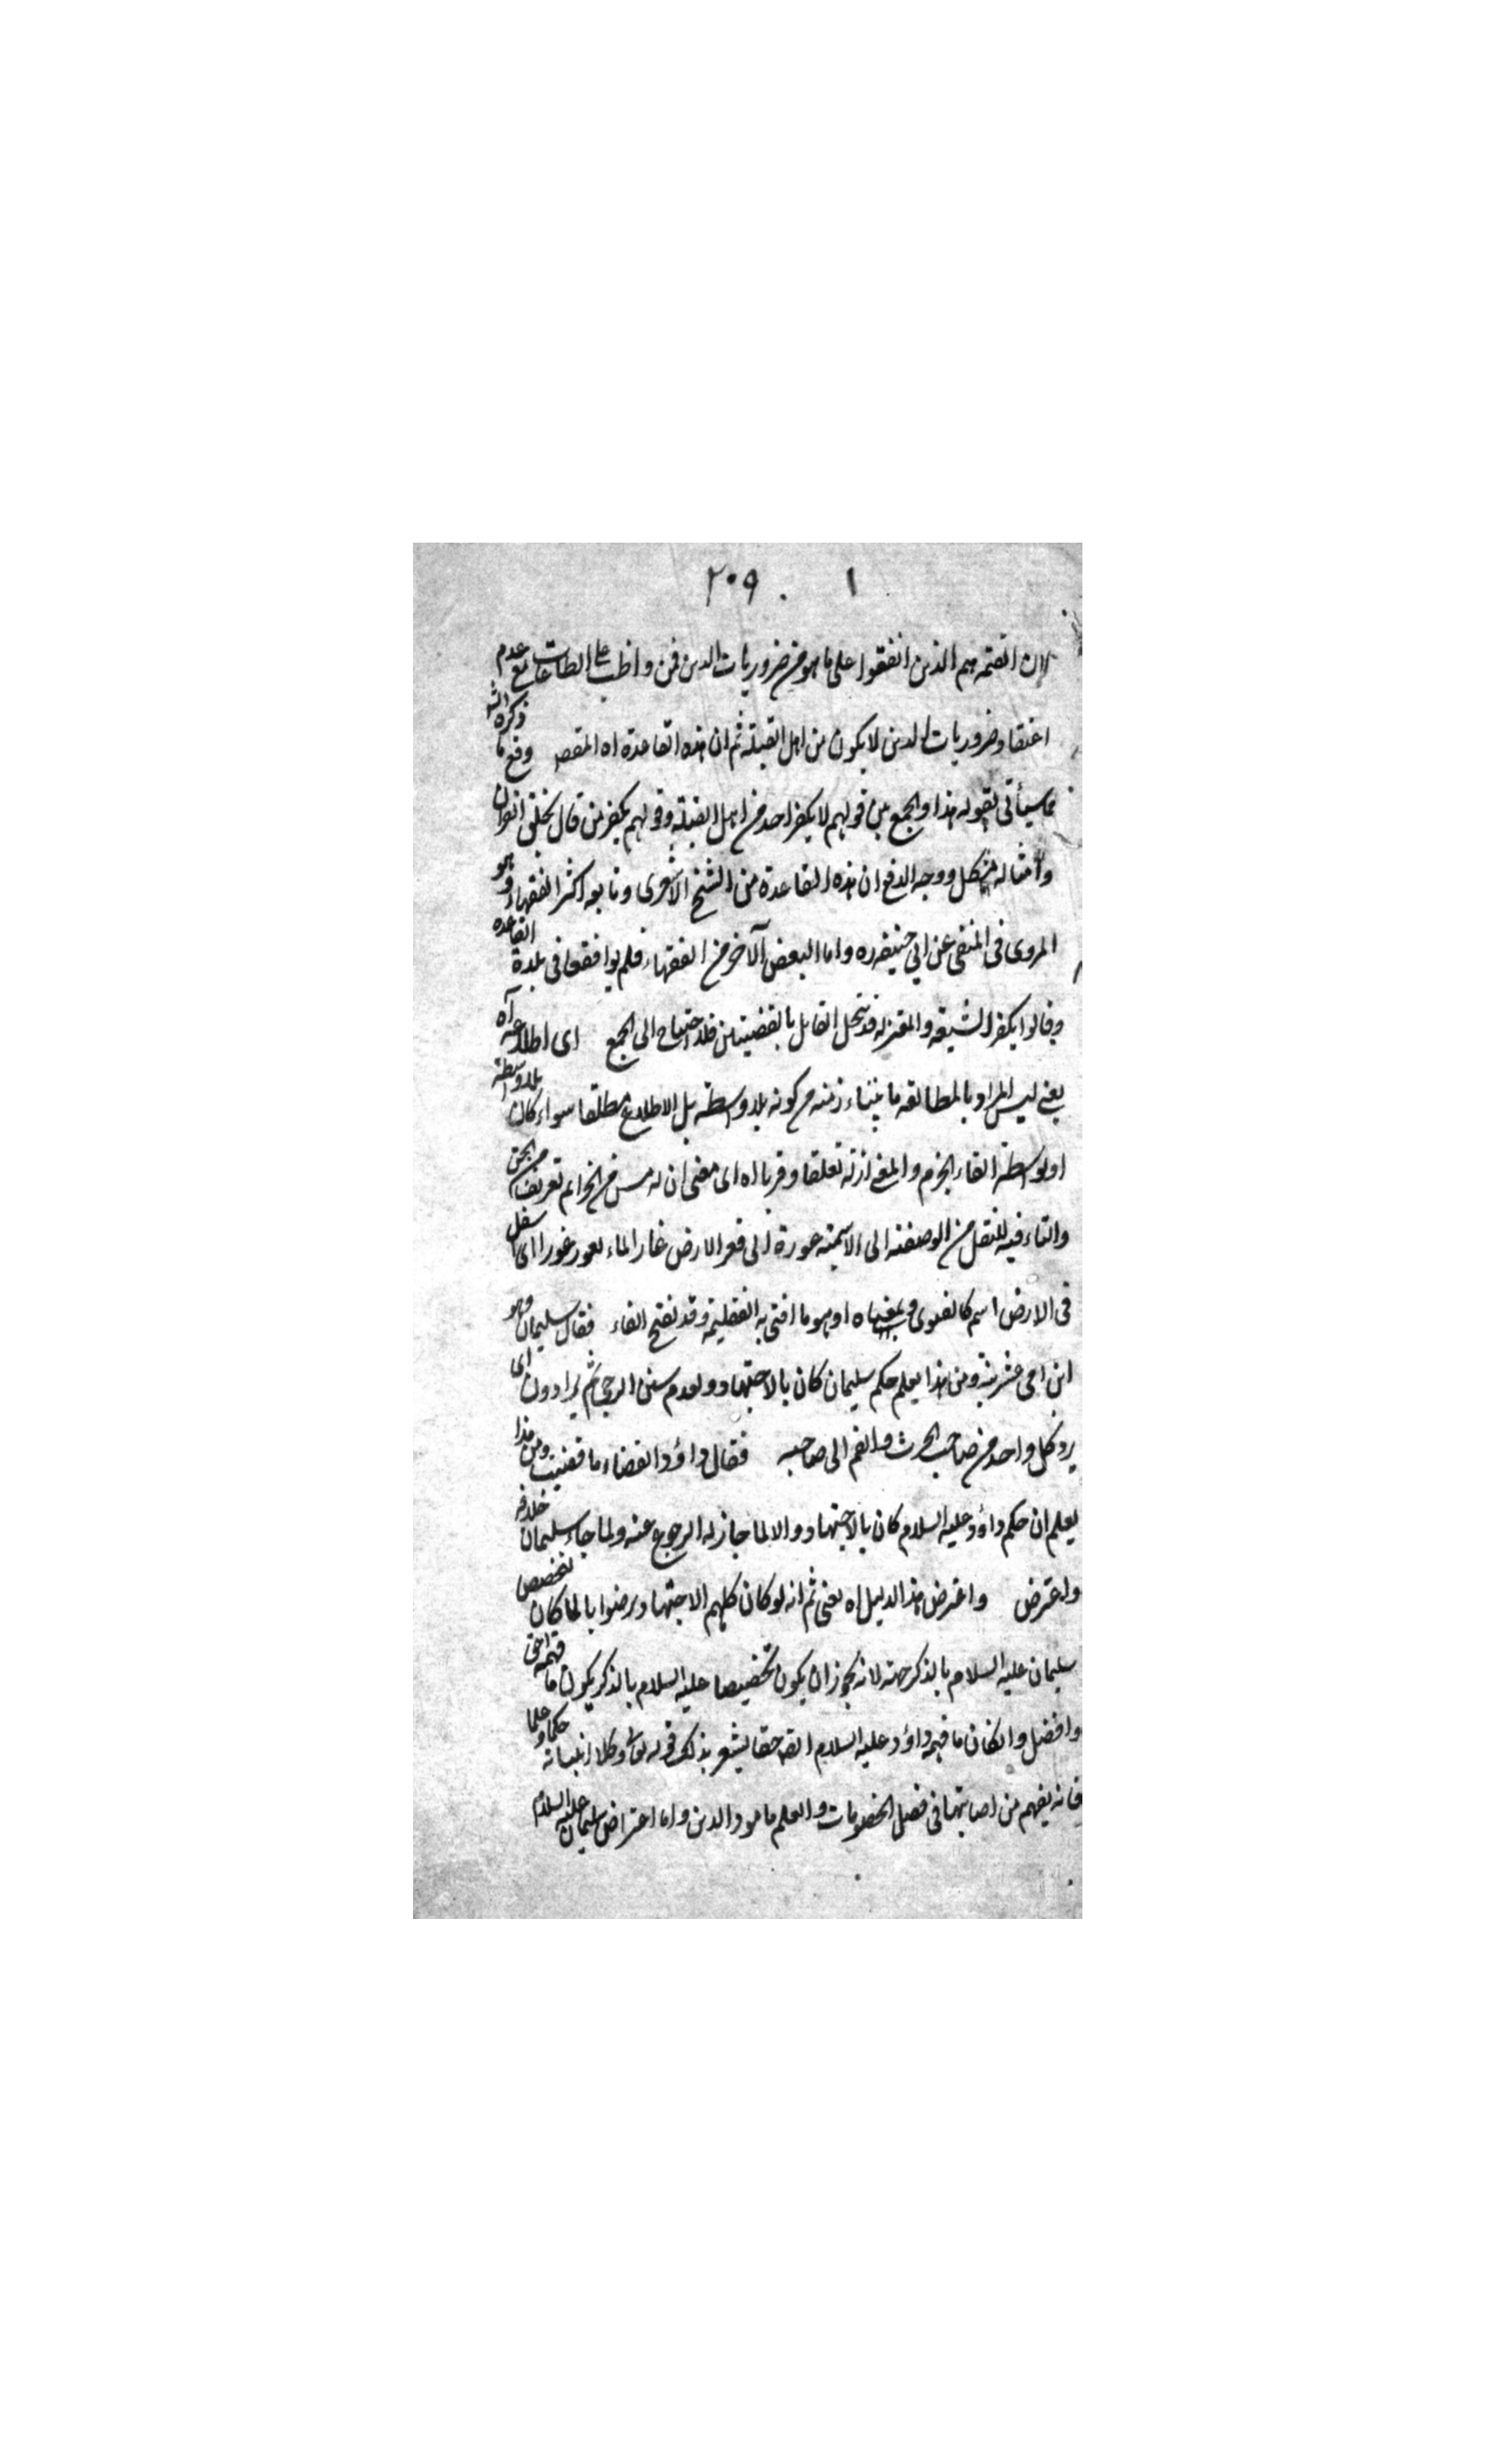 ١ ٢٠٩
لان القبلة هم الذين اتفقوا على ما هو من ضروريات الدين فمن واظب على الطاعات مع عدم
اعتقاد ضروريات الدين لا يكون من اهل القبلة ثم ان هذه القاعدة اه المقصـ دفع ما ذكره الشـ
مما سيأتى بقوله هذا والجمع بين قولهم لا يكفر احد من اهل القبلة وقولهم يكفر من قال بخلق القرآن
وامثاله مشكل ووجه الدفع ان هذه القاعدة من الشيخ الاشعرى وتابعه اكثر الفقهاء وهو
المروى فى المنتقى عن ابى حنيفه ره واما البعض الآخر من الفقهاء فلم يوافقوا فى هذه القاعده
وقالوا يكفر الشيعة والمعتزله فلا يتحد القائل بالقضيتين فلا احتياج الى الجمع اى اطلاعه آه
يعنى ليس المراد بالمطالعه ما من كونه بلا واسطة بل الاطلاع مطلقا سواء كان بلا واسطة
او بواسطة القاء الجن والمعنى ان له تعلقا وقربا اه اى معنى ان له من الجن
والتاء فيه للنقل من الوصفية الى الاسمية غورة الى قعر الارض غار الماء يغور غورا اى سفل
فى الارض اسم كالفتوى وبمعناه او هو ما افتى به الفقيه وقد تفتح الفاء فقال سليمان وهو
ابن احدى عشر سنة ومن هذا يعلم حكم سليمان كان بالاجتهاد ولعدم سن الوحى ثم يرادون اى
يرد كل واحد من صاحب الحرث والغنم الى صاحبه فقال داؤد القضاء ما قضيت ومن هذا
يعلم ان حكم داؤد عليه السلام كان بالاجتهاد والا لما جاز له الرجوع عنه ولما جاء سليمان خلافه
واعترض واعترض هذا الدليل اه يعنى ثم انه لو كان كلهم الاجتهاد لما كان تخصيص
سليمان عليه السلام بالذكر جهة لانه يجوز ان يكون تخصيصها عليه السلام بالذكر يكون ما فهمه احق
وافضل وان كان ما فهمه داؤد عليه السلام ايضـ حقا يشعر بذلك قوله تعالى وكلا اتيناه حكما وعلما
فانه يفهم من اصابتهما فى فصل الخصومات والعلم بامور الدين واما اعتراض سليمان عليه السلام